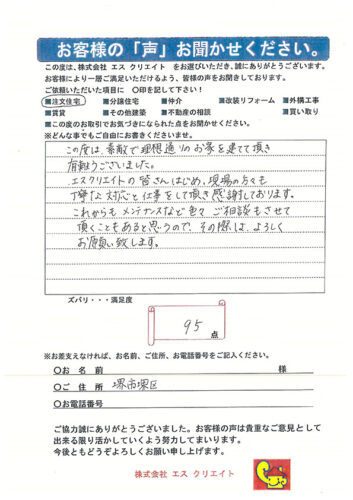 お客様の「声」お聞かせください。
この度は、株式会社 エス クリエイト をお選びいただき、誠にありがとうございます。
お客様により一層ご満足いただけるよう、皆様の声をお聞きしております。
ご依頼いただいた項目に 〇印を記して下さい!
■注文住宅 ■分譲住宅 ■仲介 ■改装リフォーム ■外構工事
■賃貸 ■その他建築 ■不動産の相談 ■買い取り
■この度のお取引でお気づきになられた点をお聞かせください。
※どんな事でもご自由にお書きくださいませ。
この度は、素敵で理想通りのお家を建てて頂き
有難うございました。
エスクリエイトの皆さんはじめ、現場の方々も
丁寧な対応と仕事をして頂き感謝しております。
これからも メンテナンスなど色々 ご相談もさせて
頂くこともあると思うので、その際は、よろしく
お願い致します。
ズバリ・・・満足度
95 点
※お差支えなければ、お名前、ご住所、お電話番号をご記入ください。
〇お 名 前 様
〇ご 住 所 堺市堺区
〇お電話番号
ご協力誠にありがとうございました。お客様の声は貴重なご意見として
出来る限り活かしていくよう努力してまいります。
今後ともどうぞよろしくお願い申し上げます。
株式会社 エス クリエイト